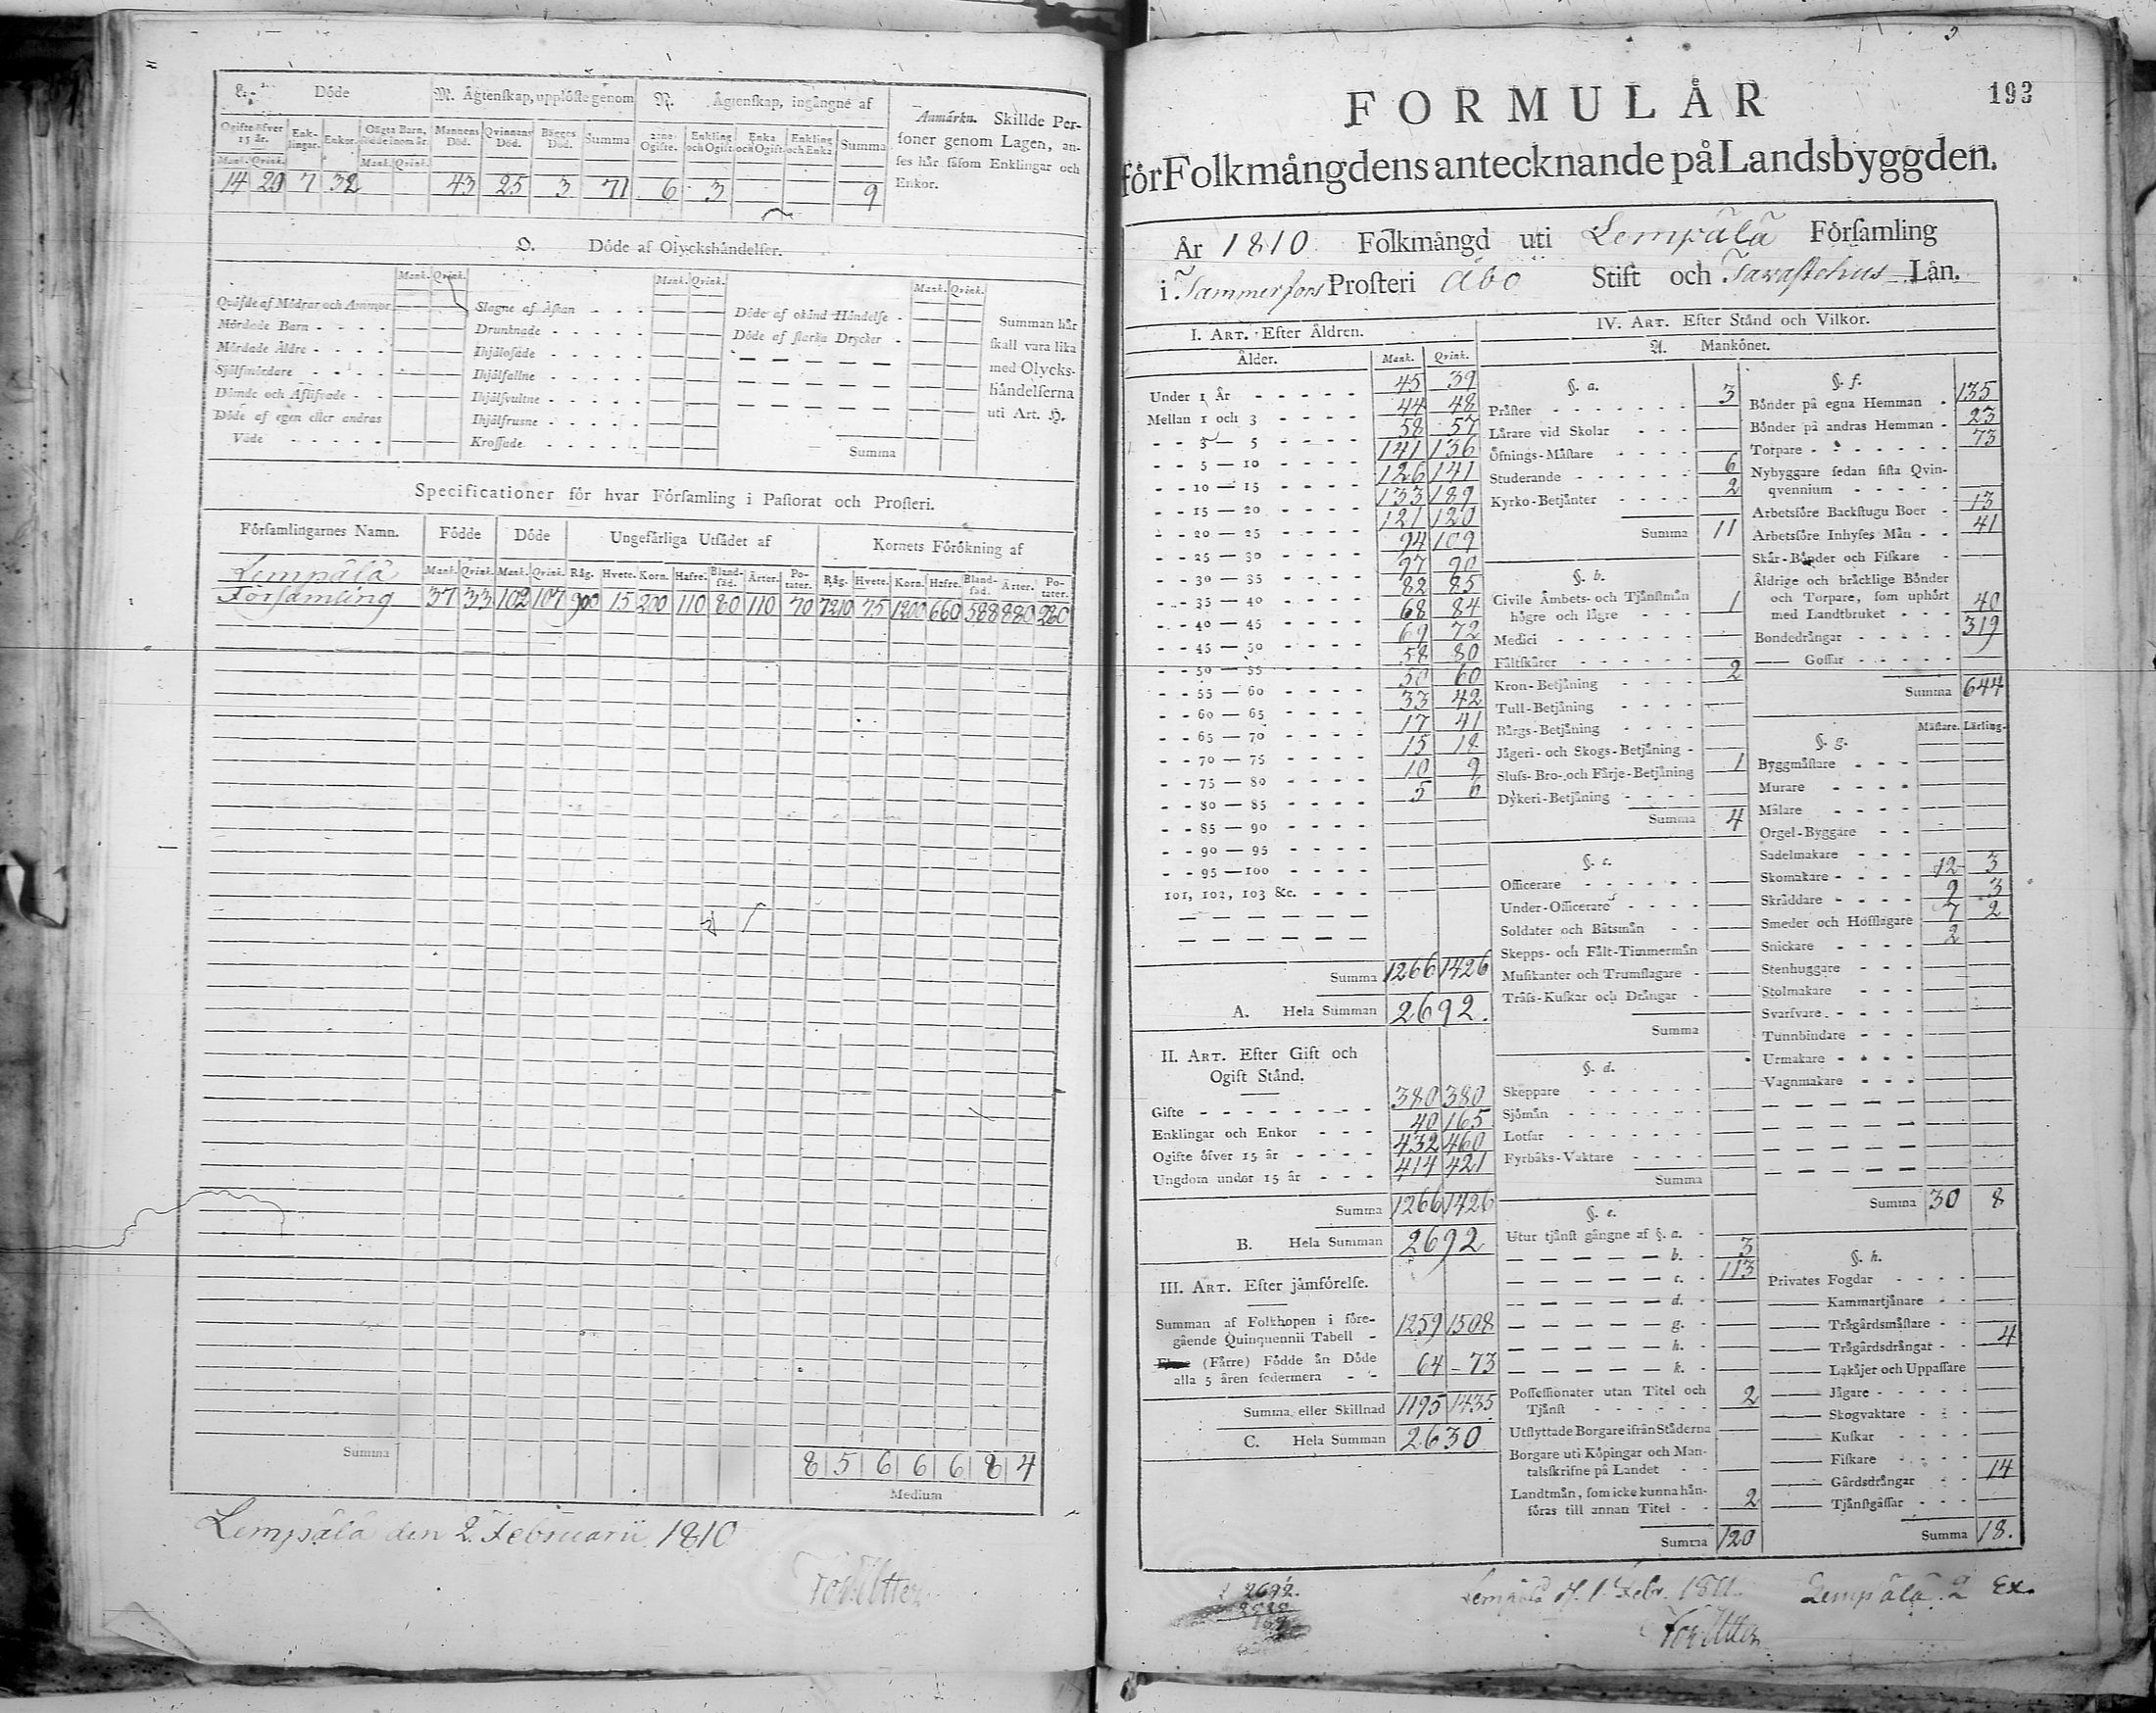 Döde
M. Ägtenskap, upplöste genom
N. Ägtenskap, ingångne af
Anmärkn. Skillde Personer genom Lagen, anses här såsom Enklingar och Enkor.
Ogifte öfver 15 år. Enklingar. Enkor. Oägta Barn, födde inom år. Mannens Död. Qvinnans Död. Bägges Död. Summa Ogifte. Enkling och Ogift. Enka och Ogift. Enkling och Enka Summa
Mank. Qvink. Mank. Qvink.
14 29 7 32 43 25 3 71 6 3 9
O. Döde af Olyckshändelser.
Mank. Qvink. Mank. Qvink. Mank. Qvink.
Qväfde af Mödrar och Ammor
Mördade Barn
Mördade Äldre
Självmördare
Dömde och Aflifvade
Döde af egen eller andras
Våde
Slagne af Åskan
Drunknade
Ihjälosade
Ihjälfallne
Ihjälsvultne
Ihjälfrusne
Krossade
Döde af okänd Händelse
Döde af starka Drycker
Summa
Summan här
skall vara lika
med Olycks-
händelserna
uti Art. H.
Specificationer för hvar Församling i Pastorat och Prosteri.
Församlingarnes Namn. Födde Döde Ungefärliga Utsädet af Kornets Förökning af
Mank. Qvink. Mank. Qvink. Råg. Hvete. Korn. Hafre. Blandsäd. Ärter. Potater. Råg. Hvete. Korn. Hafre. Blandsäd. Ärter. Potater.
Lempälä
Församling 37 33 102 107 900 15 200 110 80 110 70 7210 75 1200 660 588 880 280
Summa 8 5 6 6 6 8 4
Medium
Lempälä den 2. Februarii 1810
193
FORMULÅR
för Folkmängdens antecknande på Landsbyggden.
År 1810 Folkmängd uti Lempälä Församling
i Tammerfors Prosteri Åbo Stift och Tavastehus Län.
I. Art. Efter Åldren.
Ålder. Mank. Qvink.
Under 1 År 45 39
Mellan 1 och 3 44 48
3 — 5 58 57
5 — 10 141 136
10 — 15 126 141
15 — 20 133 189
20 — 25 121 120
25 — 30 94 109
30 — 35 97 90
35 — 40 82 85
40 — 45 68 84
45 — 50 69 72
50 — 55 58 80
55 — 60 50 60
60 — 65 33 42
65 — 70 17 41
70 — 75 15 18
75 — 80 10 9
80 — 85 5 6
85 — 90
90 — 95
95 — 100
101, 102, 103 &c.
Summa 1266 1426
A. Hela Summan 2692.
II. Art. Efter Gift och
Ogift Stånd.
Gifte 380 380
Enklingar och Enkor 40 165
Ogifte öfver 15 år 432 460
Ungdom under 15 år 414 421
Summa 1266 1426
B. Hela Summan 2692
III. Art. Efter jämförelse.
Summan af Folkhopen i före-
gående Quinquennii Tabell 1259 1508
(Färre) Födde än Döde
alla 5 åren sedermera 64 73
Summa eller Skillnad 1195 1435
C. Hela Summan 2630
IV. Art. Efter Stånd och Vilkor.
A. Mankönet.
§. a.
Präster 3
Lärare vid Skolar
Öfnings-Mästare
Studerande 6
Kyrko-Betjänter 2
Summa 11
§. b.
Civile Ämbets- och Tjänstmän
högre och lägre 1
Medici
Fältskärer
Kron-Betjäning 2
Tull-Betjäning
Bärgs-Betjäning
Jägeri- och Skogs-Betjäning
Sluss- Bro- och Färje-Betjäning 1
Dykeri-Betjäning
Summa 4
§. c.
Officerare
Under-Officerare
Soldater och Båtsmän
Skepps- och Fält-Timmermän
Musikanter och Trumslagare
Träss-Kuskar och Drängar
Summa
§. d.
Skeppare
Sjömän
Lotsar
Fyrbåks-Vaktare
Summa
§. e.
Utur tjänst gångne af §. a.
b. 3
c. 113
d.
g.
h.
k.
Possessionater utan Titel och
Tjänst 2
Utflyttade Borgare ifrån Städerna
Borgare uti Köpingar och Man-
talsskrifne på Landet
Landtmän, som icke kunna hän-
föras till annan Titel 2
Summa 120
§. f.
Bönder på egna Hemman 135
Bönder på andras Hemman 23
Torpare 73
Nybyggare sedan sista Qvin-
qvennium
Arbetsföre Backstugu Boer 13
Arbetsföre Inhyses Män 41
Skär-Bönder och Fiskare
Åldrige och bräcklige Bönder
och Torpare, som uphört
med Landtbruket 40
Bondedrängar 319
— Gossar
Summa 644
§. g. Mästare. Lärling.
Byggmästare
Murare
Målare
Orgel-Byggare
Sadelmakare
Skomakare 12 3
Skräddare 9 3
Smeder och Hofslagare 7 2
Snickare 2
Stenhuggare
Stolmakare
Svarfvare
Tunnbindare
Urmakare
Vagnmakare
Summa 30 8
§. h.
Privates Fogdar
— Kammartjänare
— Trägårdsmästare
— Trägårdsdrängar 4
— Lakäjer och Uppassare
— Jägare
— Skogvaktare
— Kuskar
— Fiskare
— Gårdsdrängar 14
— Tjänstgåssar
Summa 18.
2692.
Lempälä d. 1. Febr. 1811.
Lempälä 2 Ex.